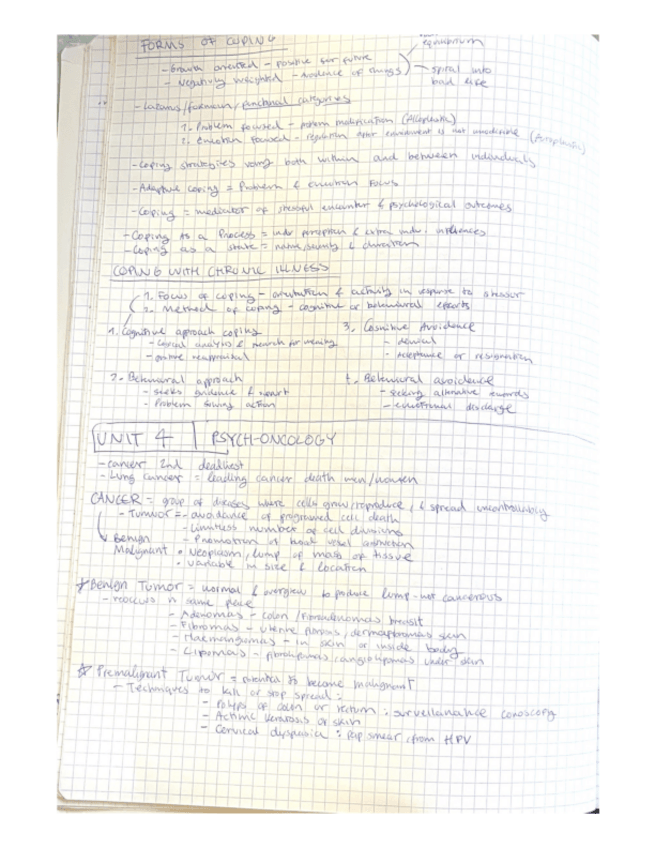 FORMS OF COPING
equilibrium
- Growth oriented - positive for future
- Negatively weighted - Avoidance of things
→ spiral into
bad life
- Lazarus / Folkman / functional categories
1. Problem focused - problem modification (Alloplastic)
2. Emotion focused - regulation after environment is not modifiable (Autoplastic)
- Coping strategies vary both within and between individuals
- Adaptive coping = Problem & emotion focus
- Coping = mediator of stressful encounter & psychological outcomes
- Coping as a Process = indv perception & extra indv. influences
- Coping as a state = nature, severity & duration
COPING WITH CHRONIC ILLNESS
1. Focus of coping - orientation & activity in response to stressor
2. Method of coping - cognitive or behavioural efforts
1. Cognitive approach coping
- Logical analysis & search for meaning
- positive reappraisal
3. Cognitive Avoidance
- denial
- Acceptance or resignation
2. Behavioural approach
- seeks guidance & support
- Problem solving action
4. Behavioural avoidance
- seeking alternative rewards
- emotional discharge
UNIT 4 | PSYCH-ONCOLOGY
- cancer 2nd deadliest
- Lung cancer = leading cancer death men/women
CANCER = group of diseases where cells grow/reproduce, & spread uncontrollably
- Tumor = - avoidance of programmed cell death
- Limitless number of cell divisions
Benign - Promotion of blood vessel
Malignant • Neoplasm, lump of mass of tissue
• variable in size & location
* Benign Tumor = normal & overgrow to produce lump - not cancerous
- reoccurs in same place
- Adenomas - colon / Fibroadenomas breast
- Fibromas - uterine fibroids, skin
- Haemangiomas - in skin or inside body
- Lipomas - fibrolipomas / angiolipomas under skin
* Premalignant Tumor = potential to become malignant
- Techniques to kill or stop spread:
- Polyps of colon or rectum : surveillance
- Actinic keratosis of skin
- Cervical : Pap smear from HPV